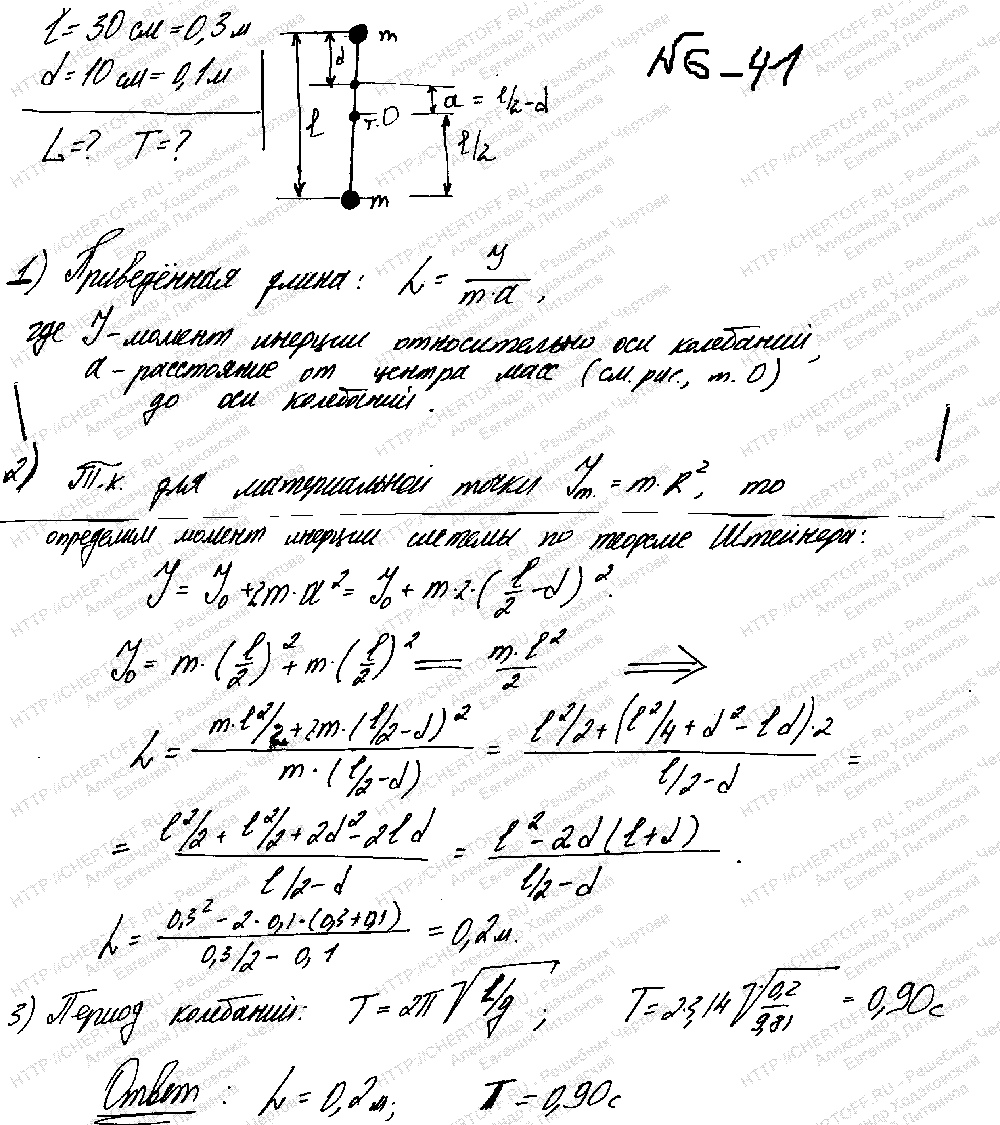 l = 30 см = 0,3 м
d = 10 см = 0,1 м
L = ? T = ?
m
d
a = l/2 - d
т. О
l
l/2
m
№6-41
1) Приведённая длина: L = J / (m·a),
где J - момент инерции относительно оси колебаний,
a - расстояние от центра масс (см. рис., т. О)
до оси колебаний.
2) Т.к. для материальной точки Jт. = m·R², то
определим момент инерции системы по теореме Штейнера:
J = J₀ + 2m·a² = J₀ + m·2·(l/2 - d)².
J₀ = m·(l/2)² + m·(l/2)² = m·l²/2 ⟹
L = (m·l²/2 + 2m·(l/2 - d)²) / (m·(l/2 - d)) = (l²/2 + (l²/4 + d² - ld)·2) / (l/2 - d) =
= (l²/2 + l²/2 + 2d² - 2ld) / (l/2 - d) = (l² - 2d(l + d)) / (l/2 - d).
L = (0,3² - 2·0,1·(0,3 + 0,1)) / (0,3/2 - 0,1) = 0,2 м.
3) Период колебаний: T = 2π√(l/g); T = 2·3,14√(0,2/9,81) = 0,90 с
Ответ: L = 0,2 м; T = 0,90 с
HTTP://CHERTOFF.RU - Решебник Чертова
Александр Ходаковский
Евгений Литвинов